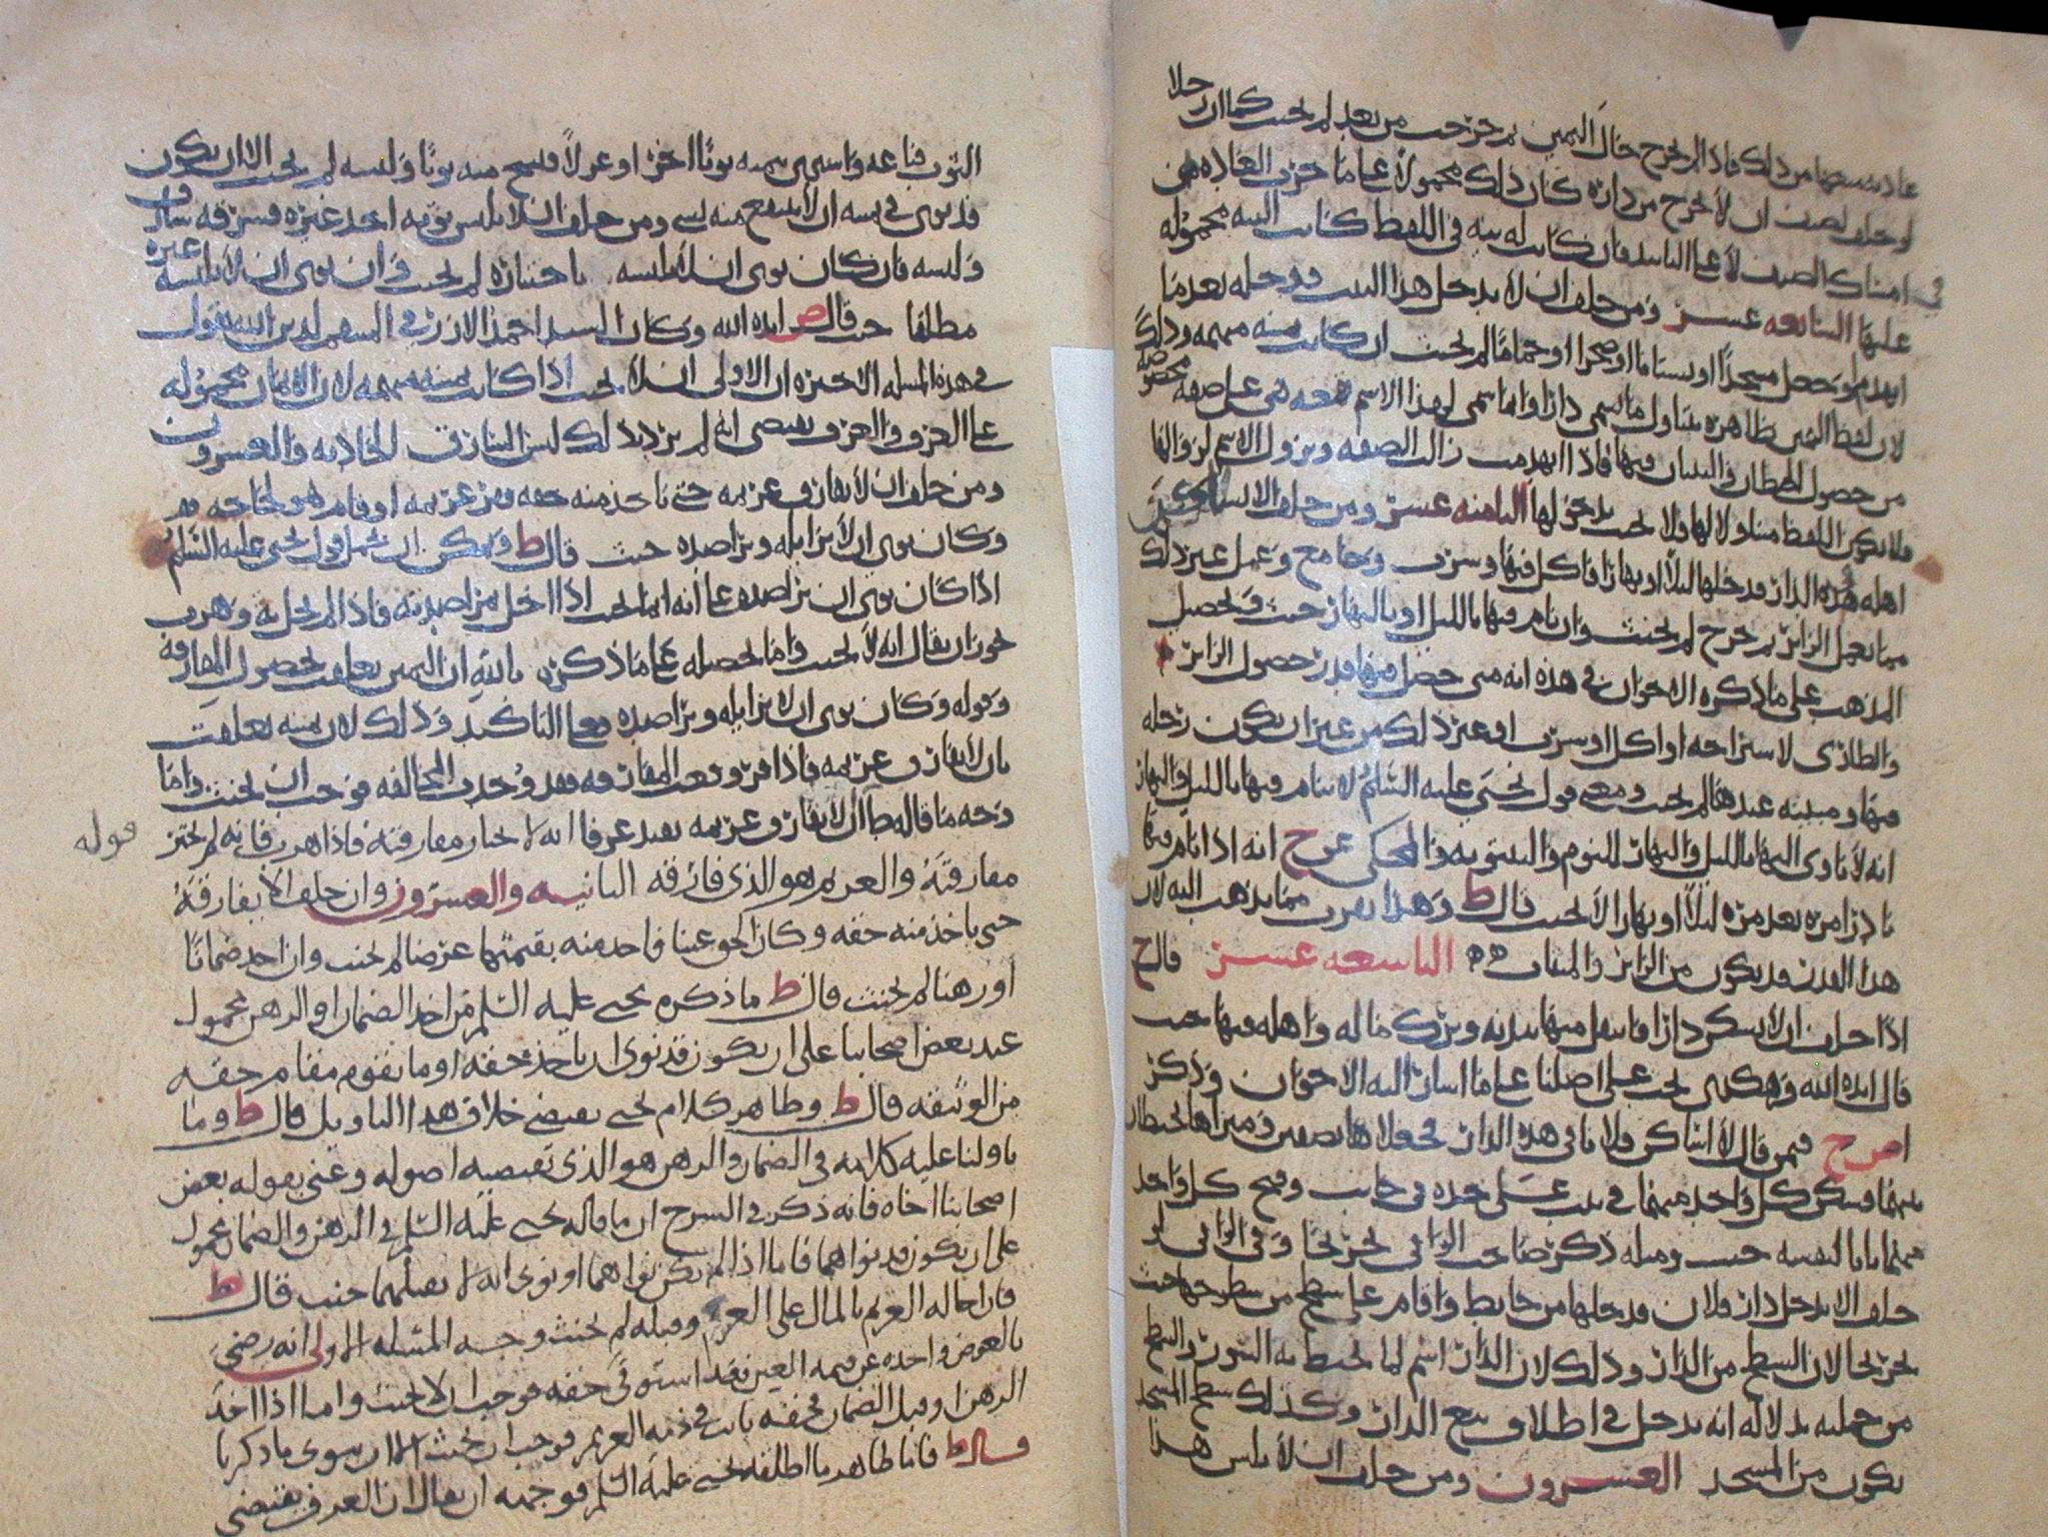 عادته بسعها من ذلك فاذا لم يخرج حال اليمين ثم خرج حنث من بعد لم يحنث كما ان رجلا
لو حلف لضيف ان لا يخرج من داره كان ذلك محمولا على ما جرت العادة من
الضيف لا على التابيد فان كانت له نيه في اللفظ كانت اليه محموله
عليها السابعه عشر ومن حلف ان لا يدخل هذا البيت فدخله بعد ما
انهدم او جعل مسجدا او بستانا او صحرا او حماما لم يحنث ان كانت يمينه مبهمه وذلك
لان لفظ اليمين بظاهره يتناول ما سمي دارا وانما سمي لهذا الاسم لصفه
من حصول الحيطان والبنيان فيها فاذا انهدمت زالت الصفه ويزول الاسم لزوالها
فلا يكون اللفظ متناولا لها ولا يحنث بدخولها الثامنه عشر ومن حلف الا يسكن
اهله هذه الدار فدخلها ليلا او نهارا فاكل فيها وشرب وجامع وعمل غير ذلك
مما يعمل الزاير ثم خرج لم يحنث وان نام فيها بالليل او بالنهار حنث وتحصيل
المذهب على ما ذكره الاخوان في هذه انه متى حصل فيها قدر حصول الزاير
والطاري لاستراحه او اكل او شرب او غير ذلك من غير ان يكون رحله
فيها ومبيته عندها لم يحنث ومعنى قول يحيى عليه السلام لا ينام فيها بالليل والنهار
انه لا ياوي اليها بالليل والنهار للنوم والبيتوته والمحكي عن ح انه اذا نام فيها
نادرا مره بعد مره ليلا او نهارا لا يحنث قال ط وهذا يقرب مما يذهب اليه لان
هذا القدر قد يكون من الزاير والمنتاب التاسعه عشر قال ح
اذا حلف ان لا يسكن دارا فانتقل منها ببدنه وترك ماله واهله فيها حنث
قال ايده الله وهكذى يجب على اصلنا على ما اشار اليه الاخوان وذكر
اص ح فيمن قال لا اساكن فلانا في هذه الدار فجعلاها نصفين وميزاها بحيطان
بينهما فسكن كل واحد منهما في بيت على حده في جانب وفتح كل واحد
منهما بابا لنفسه حنث ومثله ذكر صاحب الوافي تخريجا وفي الوافي لو
حلف الا يدخل دار فلان فدخلها من حايط واقام على سطح من سطوحها حنث
تخريجا لان السطح من الدار وذلك لان الدار اسم لما تحيط به السور والسطح
من جملته بدلاله انه يدخل في اطلاق بيع الدار وكذلك سطح المسجد
يكون من المسجد العشرون ومن حلف ان لا يلبس هذا
الثوب فباعه واشترى بثمنه ثوبا اخر او غزلا فنسج منه ثوبا ولبسه لم يحنث الا ان يكون
قد نوى في يمينه ان لا ينتفع منه بشي ومن حلف ان لا يلبس ثوبه احد غيره فسرقه سارق
ولبسه فان كان نوى ان لا يلبسه باختياره لم يحنث وان نوى ان لا يلبسه غيره
مطلقا حنث قال ص ايده الله وكان السيد احمد الازرقي المنتمي لدين الله يقول
في هذه المسله الاخيره ان الاولى ان لا يحنث اذا كانت يمينه مبهمه لان الايمان محموله
على العرف والعرف يقتضي انه لم يرد بذلك لبس السارق الحاديه والعشرون
ومن حلف ان لا يفارق غريمه حتى ياخذ منه حقه ففر غريمه او قام هو لحاجه
وكان نوى ان لا يزايله ويراصده حنث قال ط ويمكن ان يحمل قول يحيى عليه السلام
اذا كان نوى ان يراصده على انه انما يحنث اذا اخل بمراصدته فاذا لم يخل به وهرب
يجوز ان يقال انه لا يحنث واما تحصيله على ما ذكره بالله ان اليمين تعلقت بحصول المفارقه
وقوله وكان نوى ان لا يزايله ويراصده معناه التاكيد وذلك لان يمينه تعلقت
بان لا يفارق غريمه فاذا فر وقعت المفارقه فقد وجدت المخالفه فوجب ان يحنث واما
وجه ما قاله ط ان لا يفارق غريمه يفيد عرفا انه لا يختار مفارقته فاذا هرب فانه لم يختر
قوله
مفارقته والغريم هو الذي فارقه الثانيه والعشرون وان حلف الا يفارقه
حتى ياخذ منه حقه وكان الحق عينا فاخذ منه بقيمتها عرضا لم يحنث وان اخذ ضمانا
او رهنا لم يحنث قال ط ما ذكره يحيى عليه السلم من اخذ الضمان او الرهن محمول
عند بعض اصحابنا على ان يكون قد نوى ان ياخذ حقه او ما يقوم مقام حقه
من الوثيقه قال ط وظاهر كلام يحيى يقتضي خلاف هذا التاويل قال ط وما
تاولنا عليه كلامه في الضمان والرهن هو الذي تقتضيه اصوله وعنى بقوله بعض
اصحابنا اخاه فانه ذكر في الشرح ان ما قاله يحيى عليه السلم في الرهن والضمان محمول
على ان يكون قد نواهما فاما اذا لم يكن نواهما او نوى انه لا يقبلهما حنث قال ط
فان احاله الغريم بالمال على الغريم وقبله لم يحنث وجه المسئله الاولى انه رضي
بالعوض واخذه عن قيمه العين فقد استوفى حقه فوجب ان لا يحنث واما اذا اخذ
الرهن او قبل الضمان فحقه ثابت في ذمه الغريم فوجب ان يحنث الا ان ينوي ما ذكرنا
قال ط فاما ظاهر ما اطلقه يحيى عليه السلم فوجهه ان يقال ان العرف يقتضي